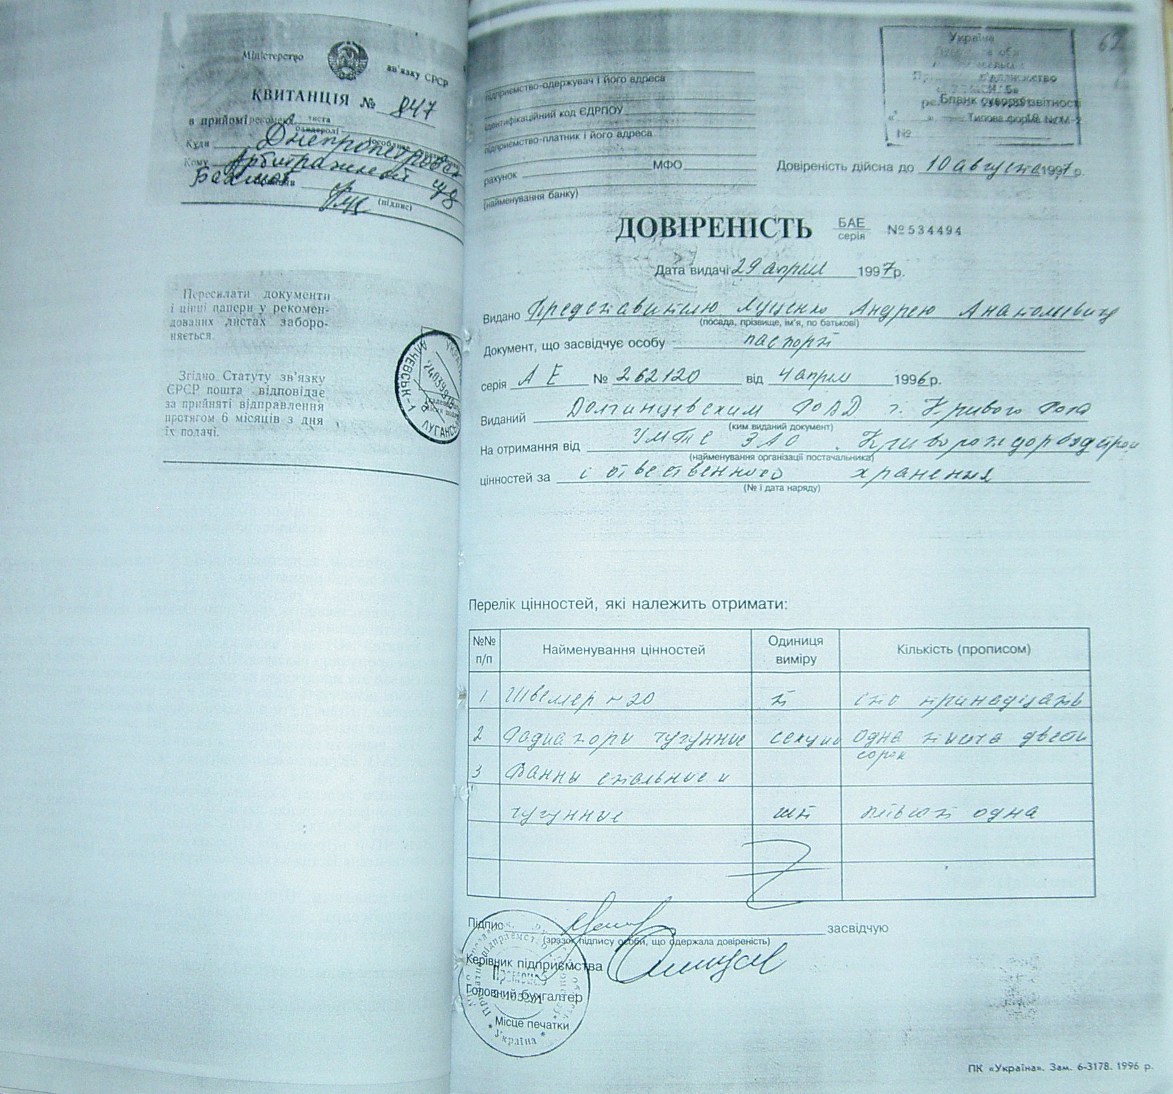 Міністерство зв'язку СРСР
КВИТАНЦІЯ № 847
в прийомі
Куди Днепропетровск
Кому Арбитражный
(підпис)
Пересилати документи
і цінні папери у рекомен-
дованих листах заборо-
няється.
Згідно Статуту зв'язку
СРСР пошта відповідає
за прийняті відправлення
протягом 6 місяців з дня
їх подачі.
62
Україна
Бланк суворої звітності
Типова форма № М-2
№
підприємство-одержувач і його адреса
ідентифікаційний код ЄДРПОУ
підприємство-платник і його адреса
рахунок МФО
(найменування банку)
Довіреність дійсна до 10 августа 1997 р.
ДОВІРЕНІСТЬ БАЕ серія № 534494
Дата видачі 29 апреля 1997 р.
Видано Представителю Луценко Андрею Анатолиевичу
(посада, прізвище, ім'я, по батькові)
Документ, що засвідчує особу паспорт
серія АЕ № 262120 від 4 апреля 1996 р.
Виданий Долгинцевским г. Кривого Рога
(ким виданий документ)
На отримання від УМТС ЗАО
(найменування організації постачальника)
цінностей за с ответственного хранения
(№ і дата наряду)
Перелік цінностей, які належить отримати:
№№ п/п Найменування цінностей Одиниця виміру Кількість (прописом)
1 Швеллер ~ 20 т сто тринадцать
2 Радиаторы чугунные секции одна тысяча двести сорок
3 Ванны стальные и
чугунные шт одна
Підпис засвідчую
(зразок підпису особи, що одержала довіреність)
Керівник підприємства
Головний бухгалтер
Місце печатки
Україна
ПК «Україна». Зам. 6-3178. 1996 р.